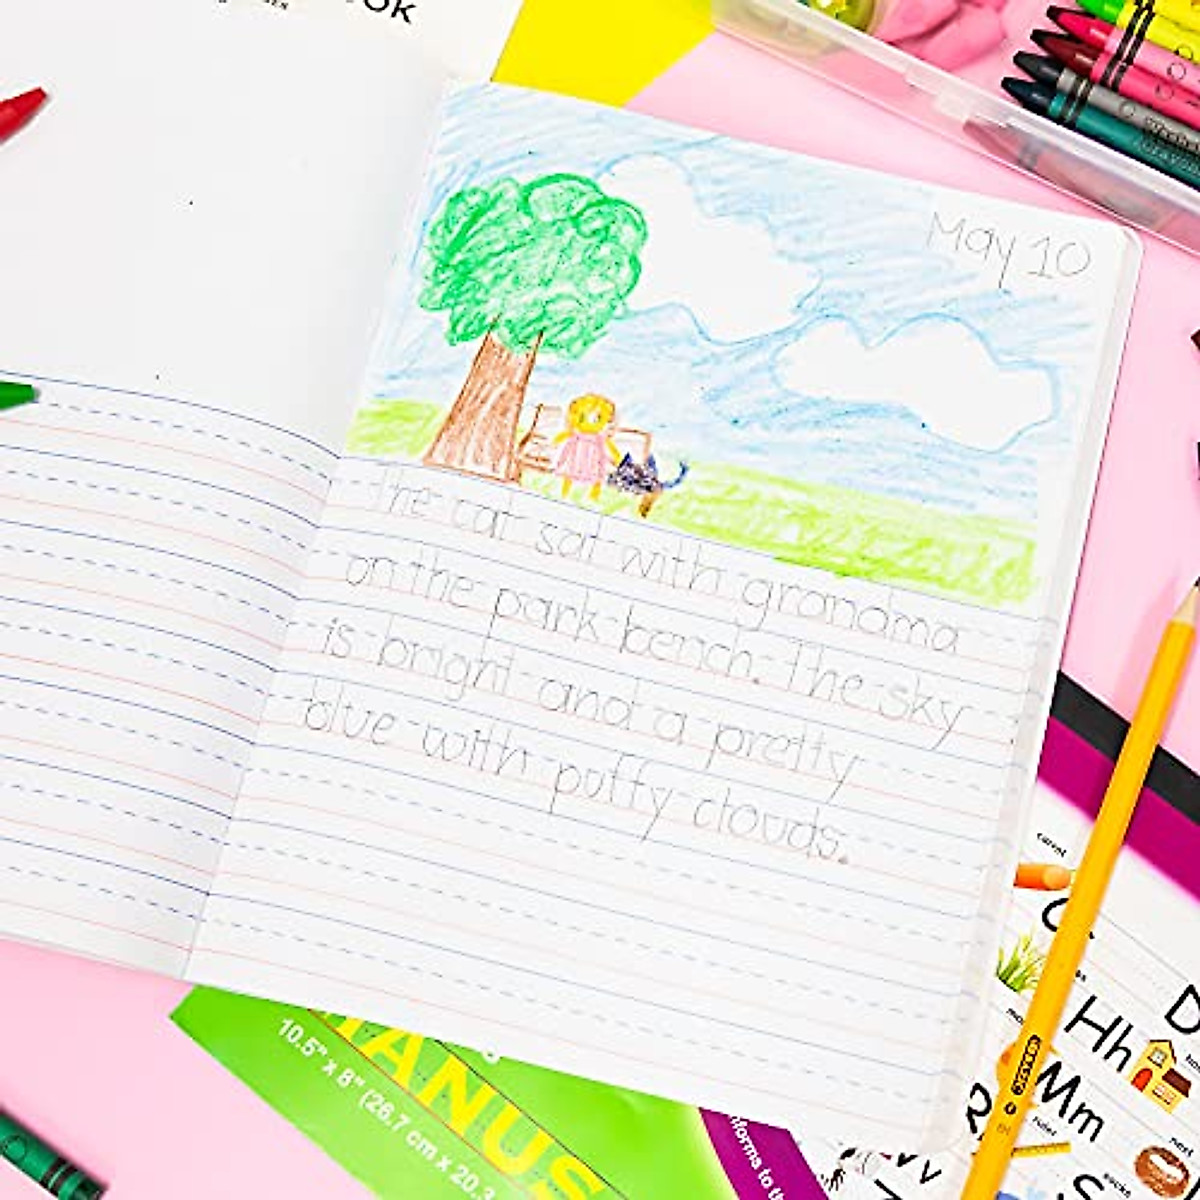 May 10
The cat sat with grandma
on the park bench. The sky
is bright and a pretty
blue with puffy clouds.
10.5" x 8" (26.7 cm x 20.3
carrot
Hh
Mm
ruler
nest